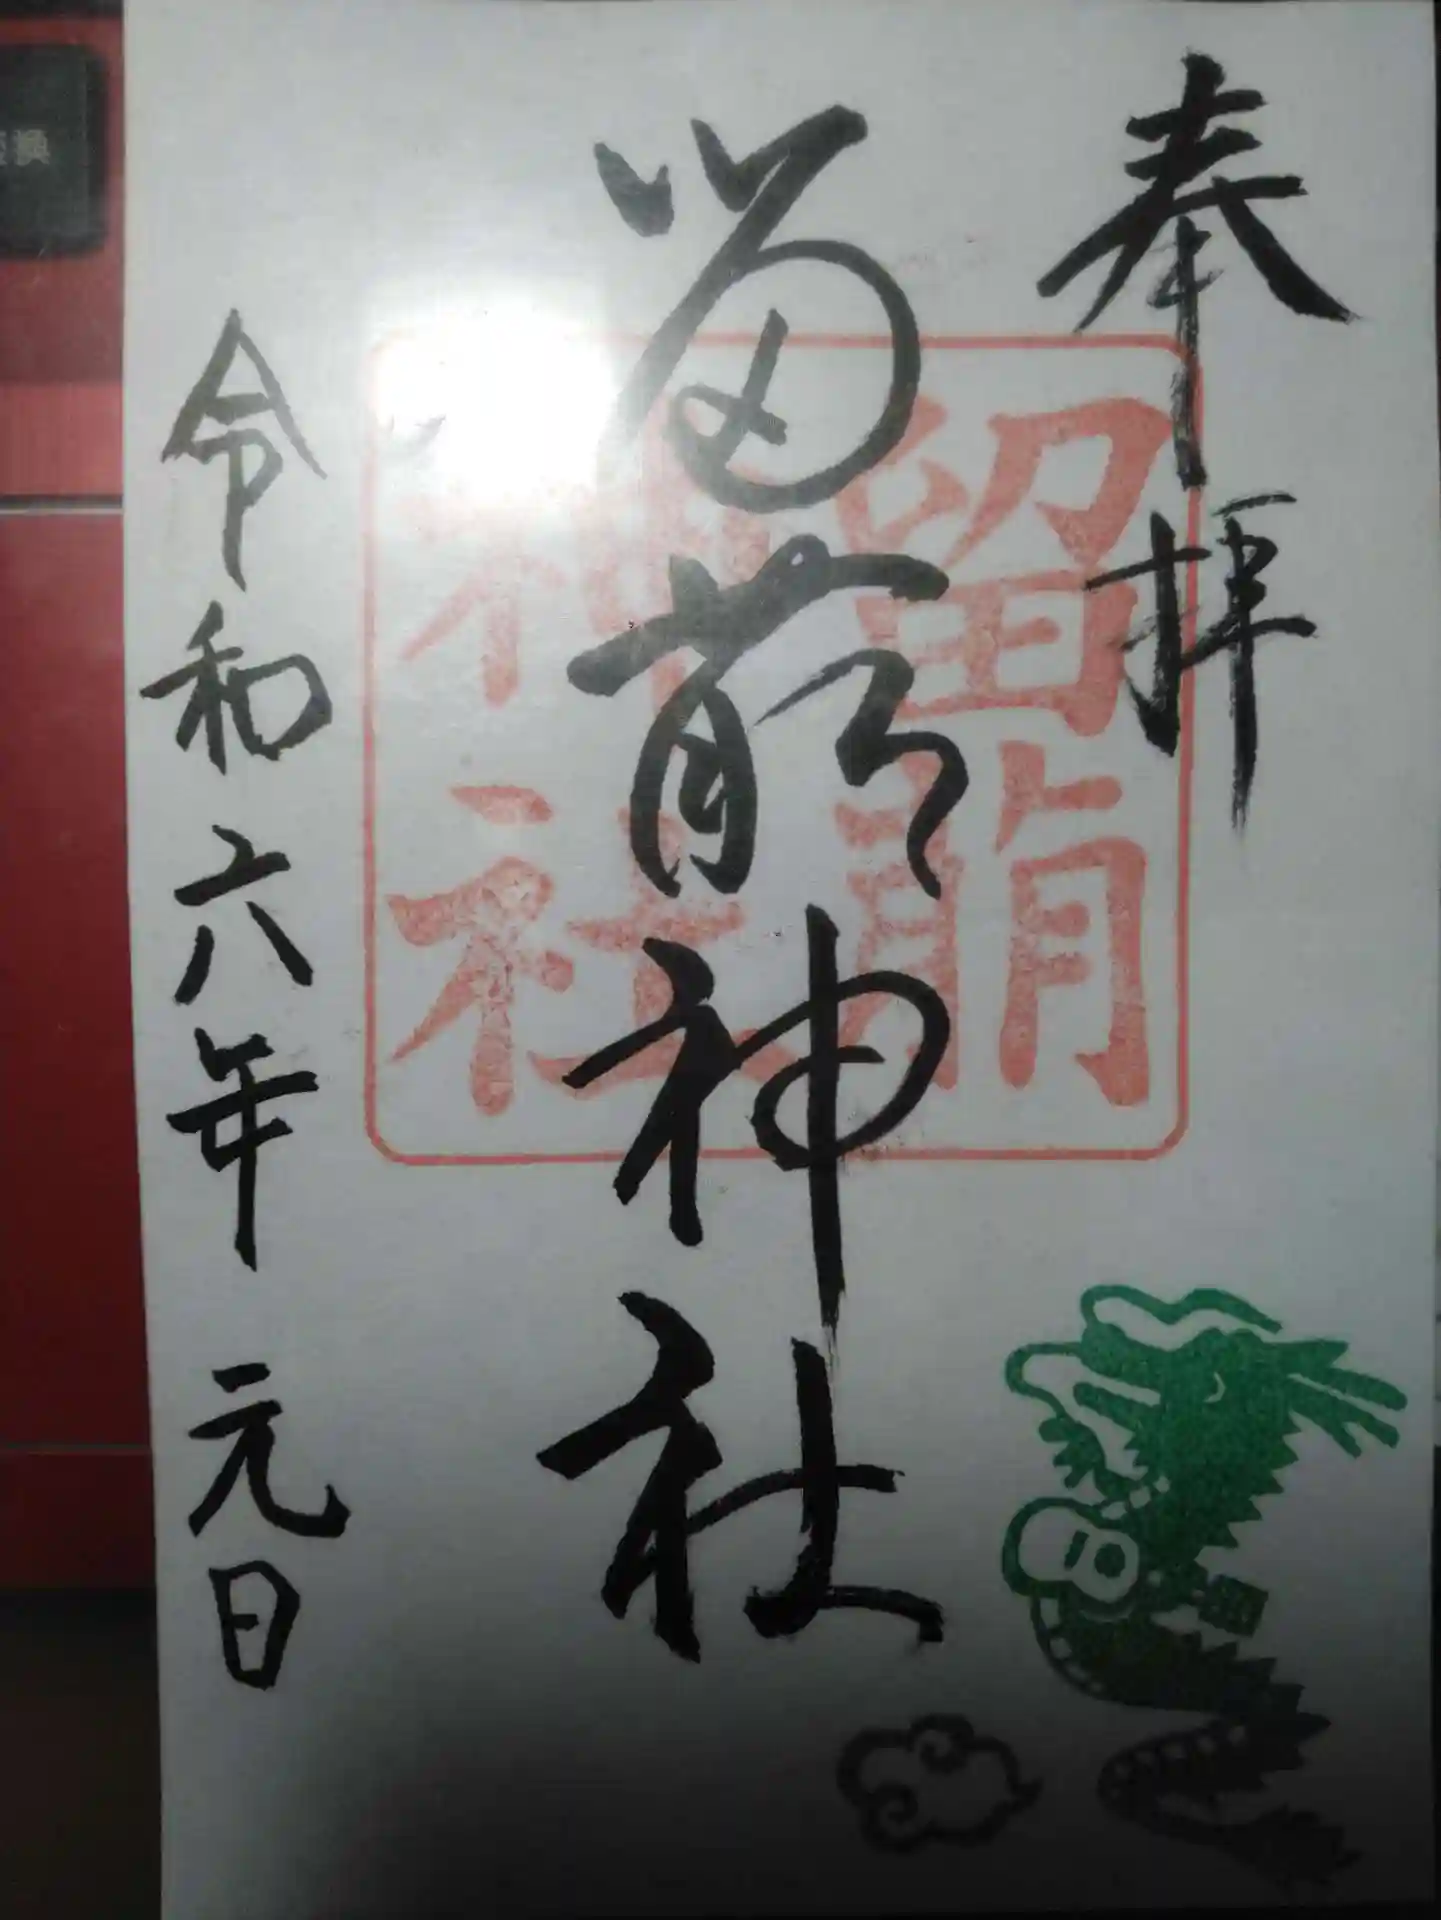 奉拝
留萌神社
留萌
神社
令和六年 元日
換